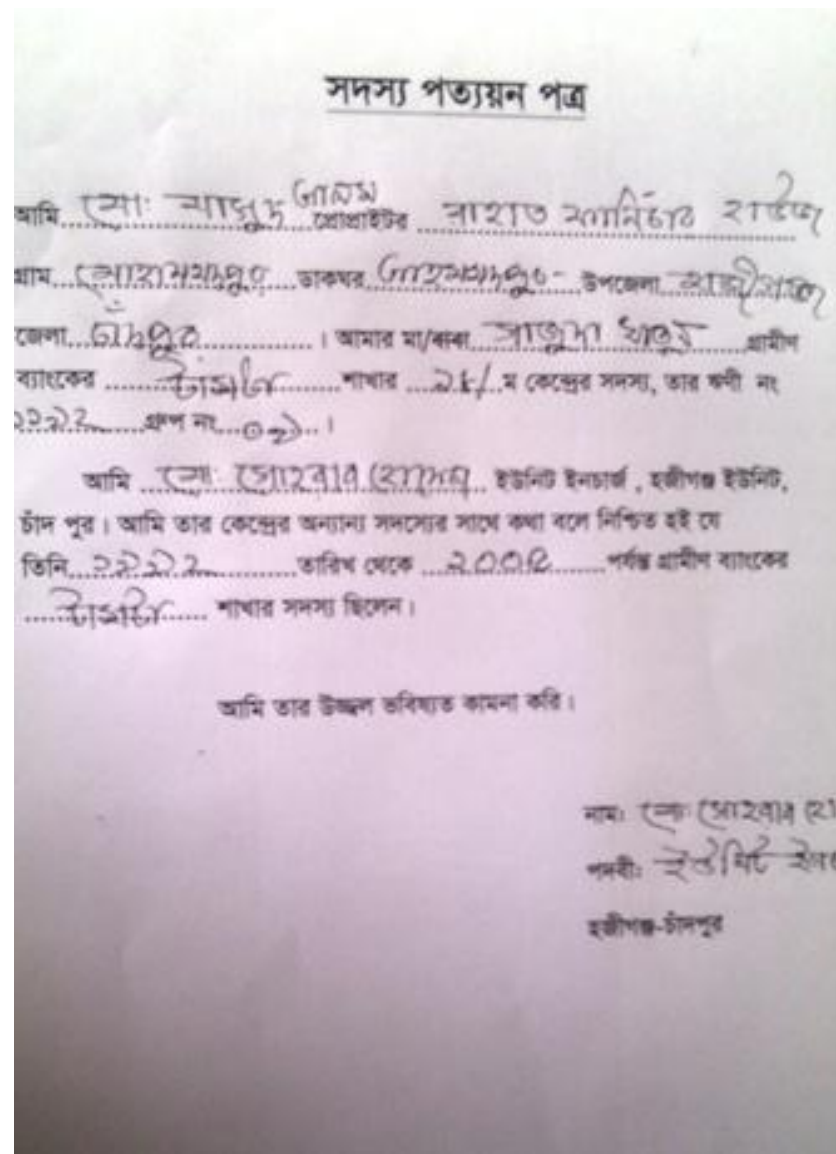 সদস্য পত্যয়ন পত্র
আমি মো: মাসুদ আলম প্রোপ্রাইটর রাহাত ফার্নিচার হাউজ
গ্রাম মোহাম্মদপুর ডাকঘর উপজেলা হাজীগঞ্জ
জেলা চাঁদপুর । আমার মা/বাবা খাতুন গ্রামীণ
ব্যাংকের শাখার ম কেন্দ্রের সদস্য, তার ঋণী নং
গ্রুপ নং ০১ ।
আমি মো: সোহরাব হোসেন ইউনিট ইনচার্জ , হজীগঞ্জ ইউনিট,
চাঁদ পুর । আমি তার কেন্দ্রের অন্যান্য সদস্যের সাথে কথা বলে নিশ্চিত হই যে
তিনি তারিখ থেকে ২০০৫ পর্যন্ত গ্রামীণ ব্যাংকের
শাখার সদস্য ছিলেন ।
আমি তার উজ্জ্বল ভবিষ্যত কামনা করি ।
নাম: মো: সোহরাব হো
পদবী: ইউনিট ইনচ
হজীগঞ্জ-চাঁদপুর